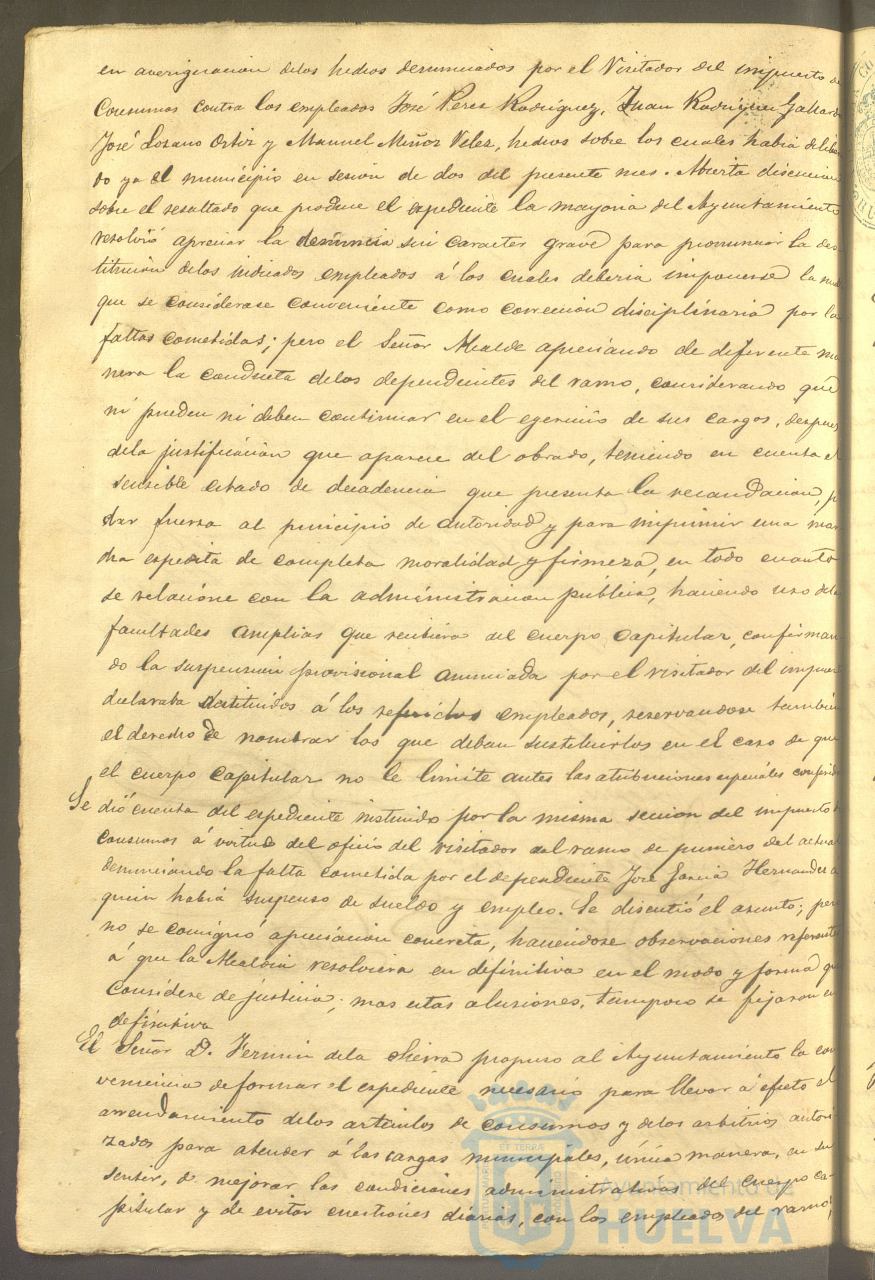 en averiguacion delos hechos denunciados por el Visitador del impuesto de
Consumos contra los empleados José Perez Rodriguez, Juan Rodriguez Gallardo
José Lozano Ortiz y Manuel Muñoz Velez, hechos sobre los cuales habia delibera
do ya el municipio en sesion de dos del presente mes. Abierta discusion
sobre el resultado que produce el espediente la mayoria del Ayuntamiento
resolvió apreciar la denuncia sin caracter grave para pronunciar la des
titucion delos indicados empleados á los cuales deberia imponerse la
que se considerase conveniente como correccion disciplinaria por las
faltas cometidas; pero el Señor Alcalde apreciando de diferente ma
nera la conducta delos dependientes del ramo, considerando que
ni pueden ni deben continuar en el egercicio de sus cargos, despues
dela justificacion que aparece del obrado, teniendo en cuenta el
sensible estado de decadencia que presenta la recaudacion, p
dar fuerza al principio de autoridad y para imprimir una mar
cha espedita de completa moralidad y firmeza, en todo cuanto
se relacione con la administracion pública, haciendo uso delas
facultades amplias que recibiera del cuerpo capitular, confirman
do la suspension provisional anunciada por el visitador del impues
declaraba destituidos á los referidos empleados, reservandose tambien
el derecho de nombrar los que deban sustituirlos en el caso de que
el cuerpo capitular no le limite antes las atribuciones especiales conferidas
Se dió cuenta del espediente instruido por la misma seccion del impuesto de
consumos á virtud del oficio del visitador del ramo de primero del actual
denunciando la falta cometida por el dependiente José Garcia Hernandez a
quien habia suspenso de sueldo y empleo. Se discutió el asunto; pero
no se consignó apreciacion concreta, haciendose observaciones referentes
á que la Alcaldia resolviera en definitiva en el modo y forma que
considere de justicia; mas estas alusiones, tampoco se fijaron en
definitiva
El Señor D. Fermin dela Sierra propuso al Ayuntamiento la con
veniencia de formar el espediente necesario para llevar á efecto el
arrendamiento delos articulos de consumos y delos arbitrios autori
zados para atender á las cargas municipales, única manera, en su
sentir, de mejorar las condiciones administrativas del cuerpo ca-
pitular y de evitar cuestiones diarias, con los empleados del ramo;
ET TERRA
Ayuntamiento de
HUELVA